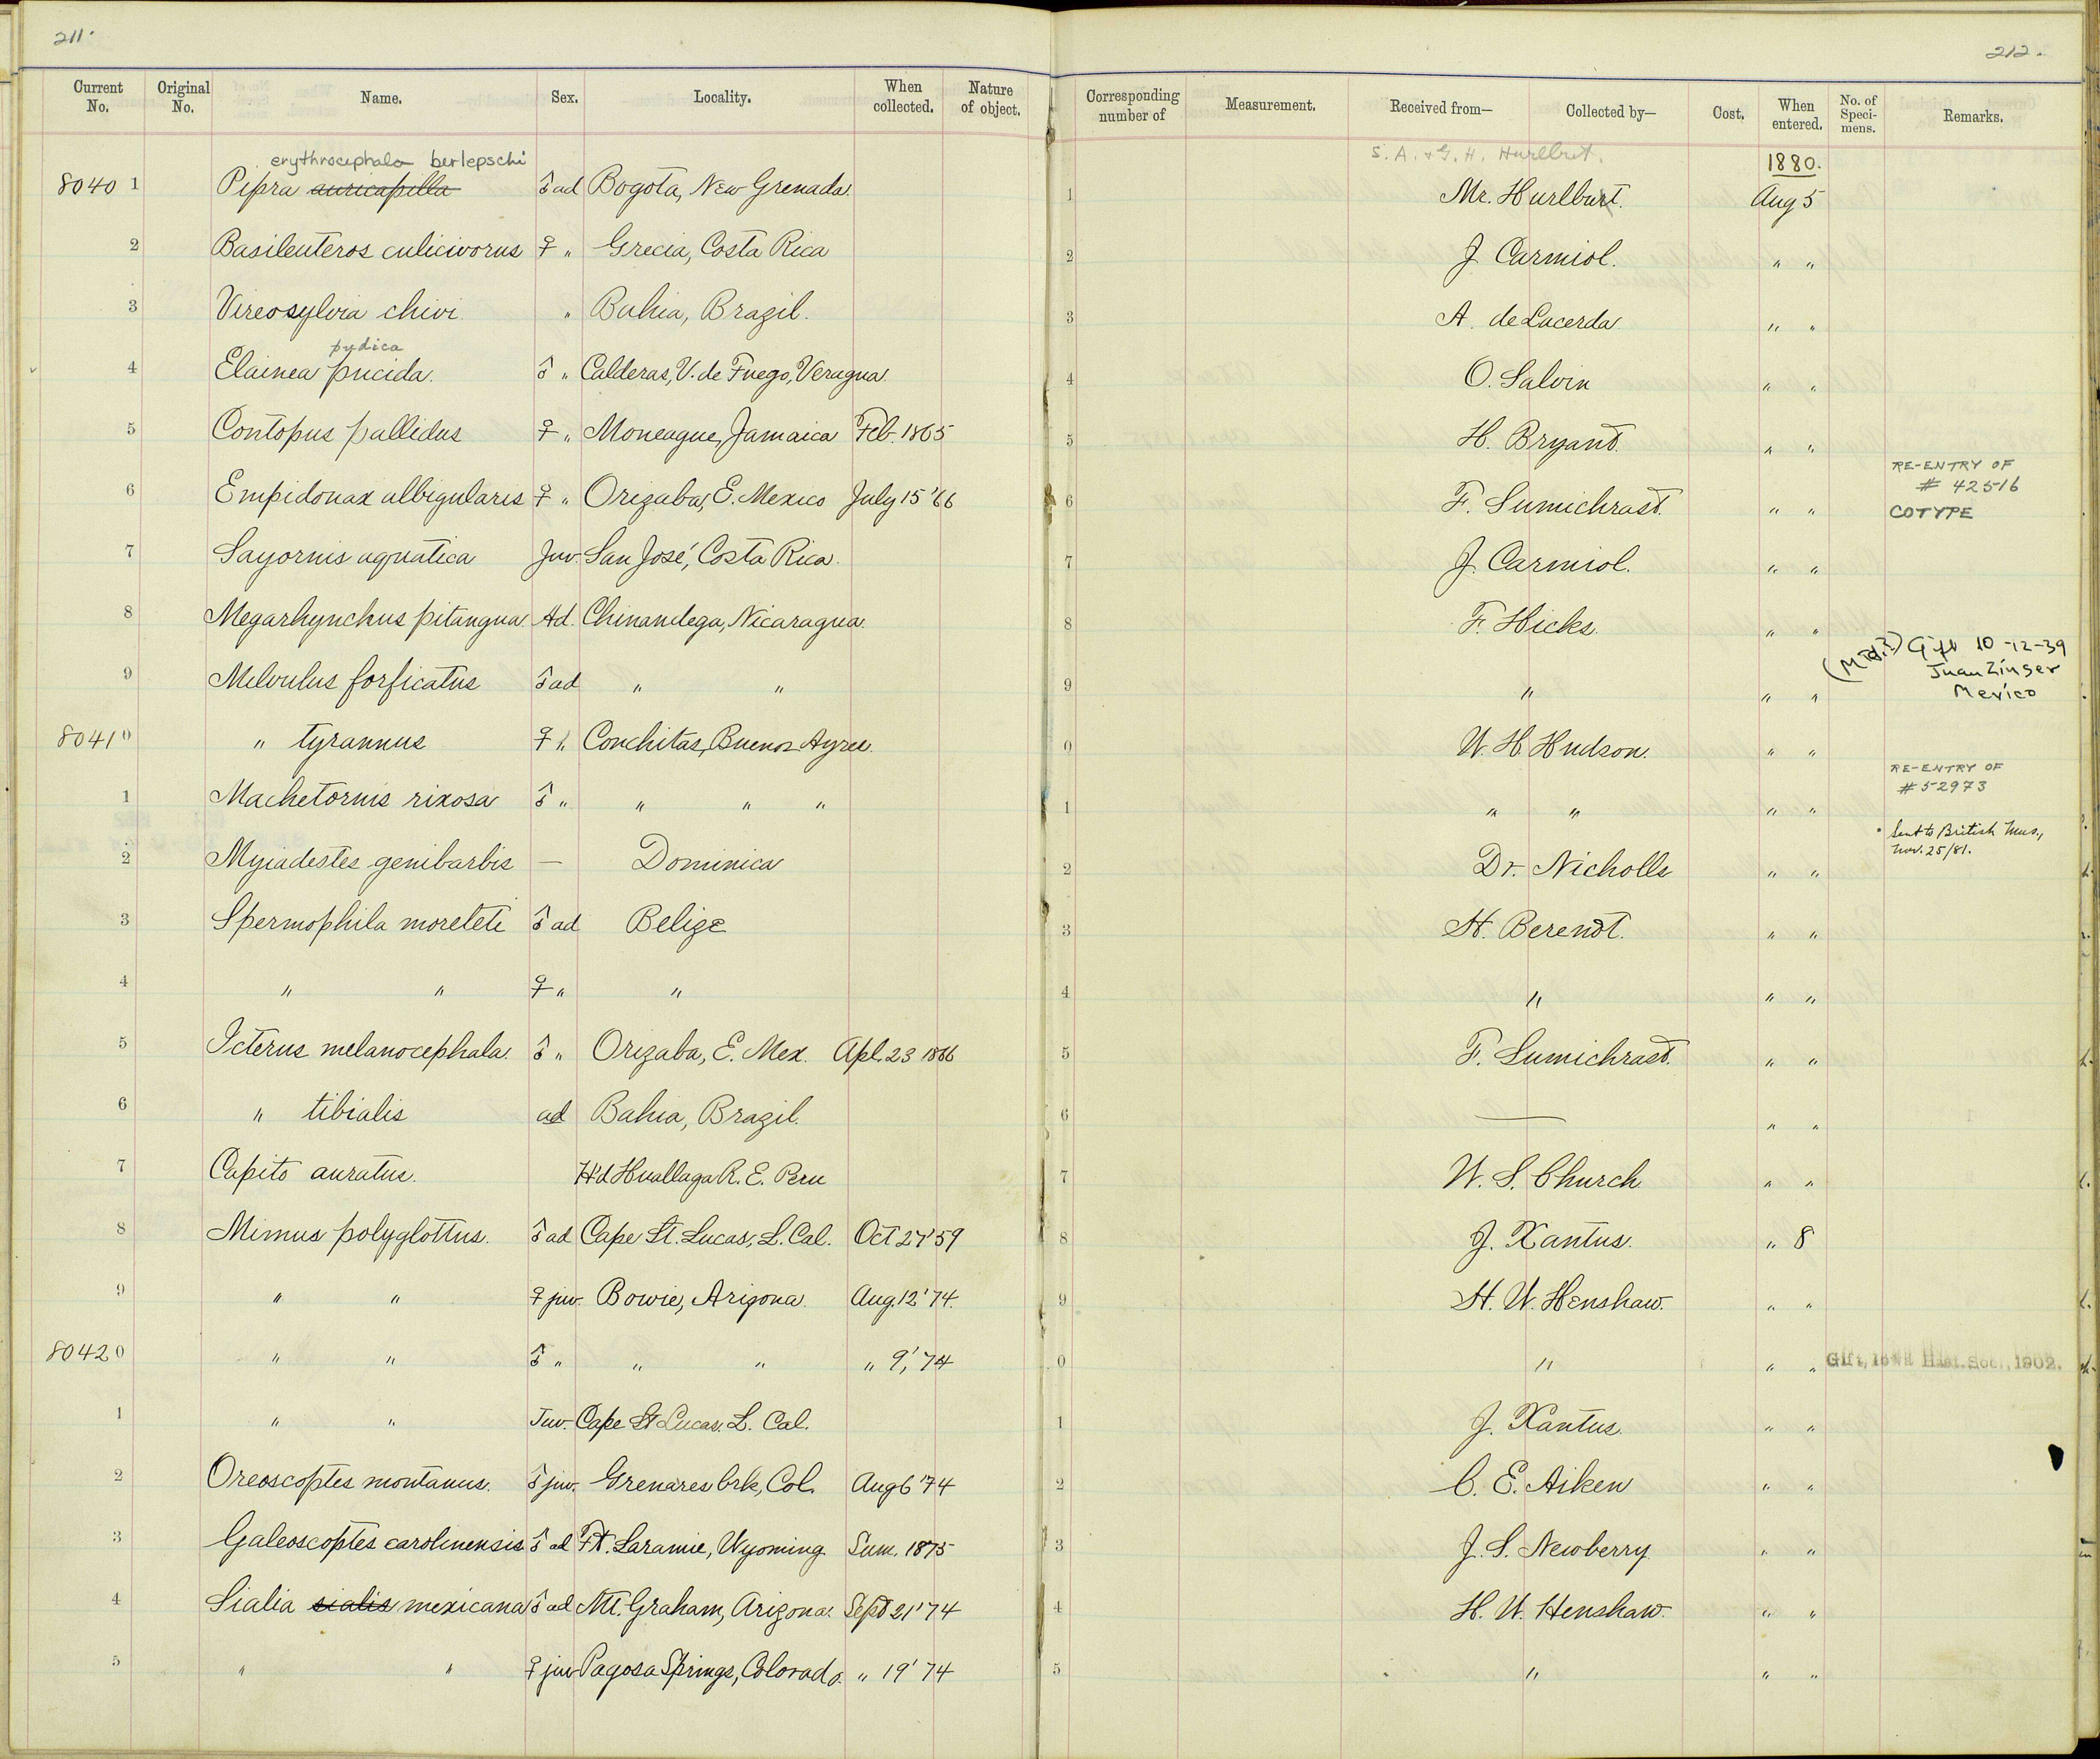 211.
212.
Current No. Original No. Name. Sex. Locality. When collected. Nature of object. Corresponding number of Measurement. Received from— Collected by— Cost. When entered. No. of Speci-mens. Remarks.
erythrocephala berlepschi S. A. & G. H. Hurlbut. 1880.
8040 1 Pipra auricapilla ♂ ad Bogota, New Grenada. 1 Mr. Hurlburt. Aug 5
2 Basileuteros culicivorus ♀ " Grecia, Costa Rica 2 J. Carmiol. " "
3 Vireosylvia chivi " Bahia, Brazil. 3 A. de Lacerda " "
pudica
4 Elainea pucida. ♂ " Calderas, V. de Fuego, Veragua. 4 O. Salvin " "
5 Contopus pallidus ♀ " Moneague, Jamaica Feb. 1865 5 H. Bryant. " "
6 Empidonax albigularis ♀ " Orizaba, E. Mexico July 15 '66 6 F. Sumichrast. " " RE-ENTRY OF
# 42516
COTYPE
7 Sayornis aquatica Juv. San José, Costa Rica. 7 J. Carmiol. " "
8 Megarhynchus pitangua. Ad. Chinandega, Nicaragua. 8 F. Hicks. " "
9 Milvulus forficatus ♂ ad " " 9 " " " Gift 10-12-39
Juan Zinser
Mexico
8041 0 " tyrannus ♀ " Conchitas, Buenos Ayres. 0 W. H. Hudson. " "
1 Machetornis rixosa ♂ " " " " 1 " " " " RE-ENTRY OF
# 52973
2 Myiadestes genibarbis — Dominica 2 Dr. Nicholls " " Sent to British Mus.,
Nov. 25/81.
3 Spermophila moreleti ♂ ad Belize 3 H. Berendt. " "
4 " " ♀ " " 4 " " "
5 Icterus melanocephala. ♂ " Orizaba, E. Mex. Apl. 23 1866 5 F. Sumichrast. " "
6 " tibialis ad Bahia, Brazil. 6 — " "
7 Capito auratus. H'd Huallaga R. E. Peru 7 W. S. Church " "
8 Mimus polyglottus. ♂ ad Cape St. Lucas, L. Cal. Oct 27 '59 8 J. Xantus. " 8
9 " " ♀ juv. Bowie, Arizona. Aug. 12 '74. 9 H. W. Henshaw. " "
8042 0 " " ♂ " " " " 9, '74 0 " " " Gift, Iowa Hist. Soc., 1902.
1 " " Juv. Cape St Lucas. L. Cal. 1 J. Xantus. " "
2 Oreoscoptes montanus. ♂ juv. Col. Aug 6 '74 2 C. E. Aiken " "
3 Galeoscoptes carolinensis ♂ ad Ft. Laramie, Wyoming Sum. 1875 3 J. S. Newberry " "
4 Sialia sialis mexicana ♂ ad Mt. Graham, Arizona. Sept 21 '74 4 H. W. Henshaw. " "
5 " " ♀ juv Pagosa Springs, Colorado. " 19 '74 5 " " "